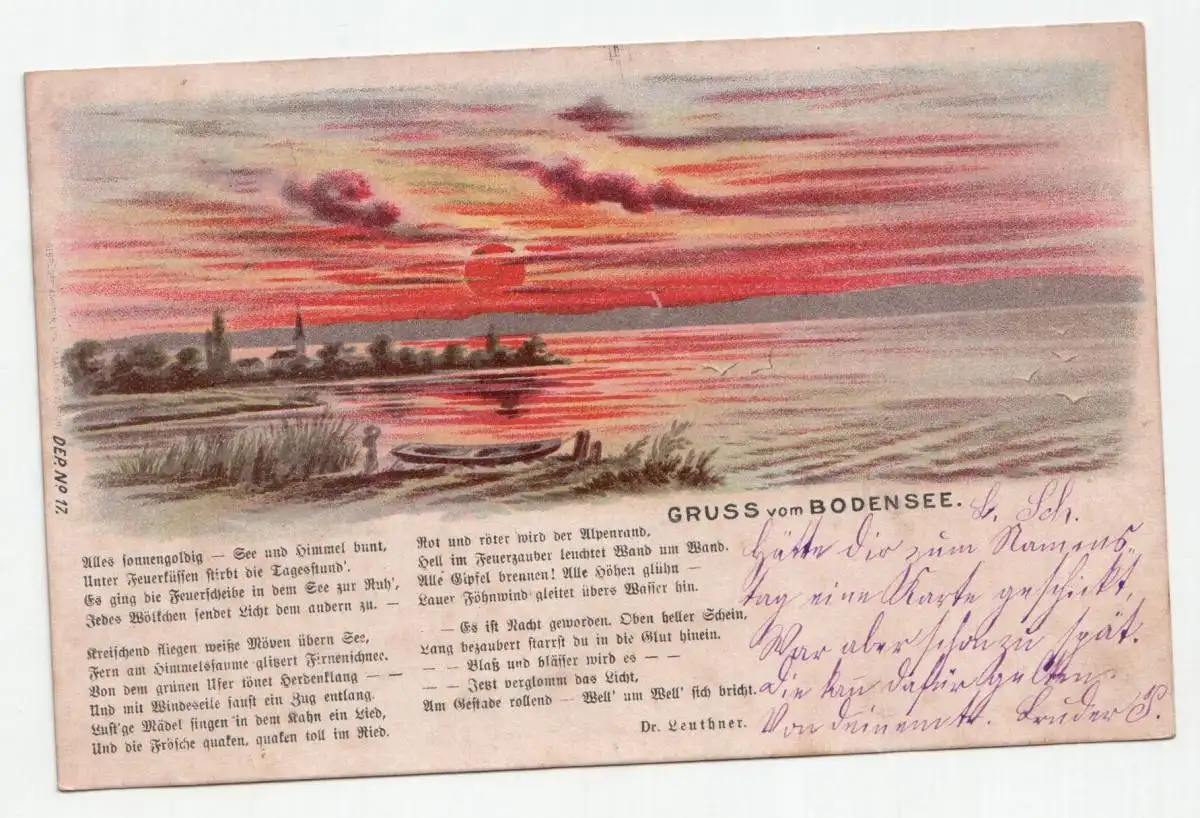 GRUSS vom BODENSEE.
DEP. No 17.
Alles sonnengoldig — See und Himmel bunt,
Unter Feuerküssen stirbt die Tagesstund'.
Es ging die Feuerscheibe in dem See zur Ruh',
Jedes Wölkchen sendet Licht dem andern zu. —
Kreischend fliegen weiße Möven übern See,
Fern am Himmelssaume glitzert Firnenschnee.
Von dem grünen Ufer tönet Herdenklang — —
Und mit Windeseile saust ein Zug entlang.
Lust'ge Mädel singen in dem Kahn ein Lied,
Und die Frösche quaken, quaken toll im Ried.
Rot und röter wird der Alpenrand,
Hell im Feuerzauber leuchtet Wand um Wand.
Alle Gipfel brennen! Alle Höhen glühn —
Lauer Föhnwind gleitet übers Wasser hin.
— Es ist Nacht geworden. Oben heller Schein,
Lang bezaubert starrst du in die Glut hinein.
— — Blaß und blässer wird es — —
— — Jetzt verglomm das Licht,
Am Gestade rollend — Well' um Well' sich bricht.
Dr. Leuthner.
L. Sch.
Hätte dir zum Namens-
tag eine Karte geschickt,
War aber schon zu spät.
Die kan dafür gelten
Von deinem tr. Bruder P.